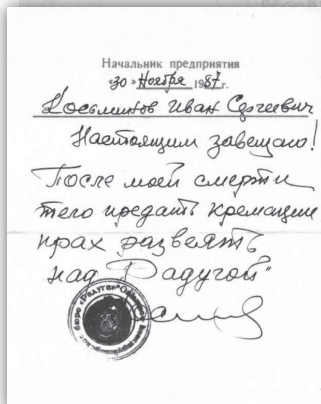 Начальник предприятия
"30" Ноября 1987 г.
Косьминов Иван Сергеевич
Настоящим завещаю!
После моей смерти
тело предать кремации
прах развеять
над Радугой"